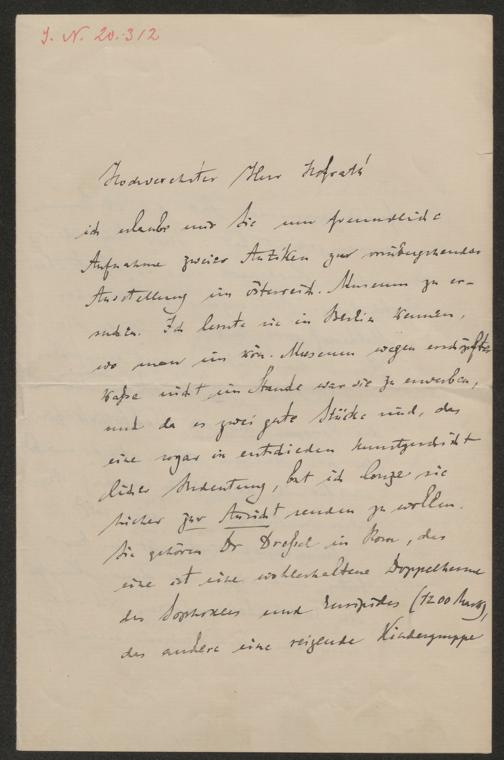 J. N. 20.312
Hochverehrter Herr Hofrath!
ich erlaube mir Sie um freundliche
Aufnahme zweier Antiken zur vorübergehenden
Ausstellung im österreich. Museum zu er-
suchen. Ich lernte sie in Berlin kennen,
wo man im kön. Museum wegen erschöpfter
Kasse nicht im Stande war sie zu erwerben,
und da es zwei gute Stücke sind, das
eine sogar in entschieden kunstgeschicht
licher Bedeutung, bat ich sie
hieher zur Ansicht senden zu wollen.
Sie gehören Dr Dressel in Rom, das
eine ist eine wohlerhaltene Doppelherme
des Sophokles und Euripides (1200 Mark),
das andere eine reizende Kindergruppe